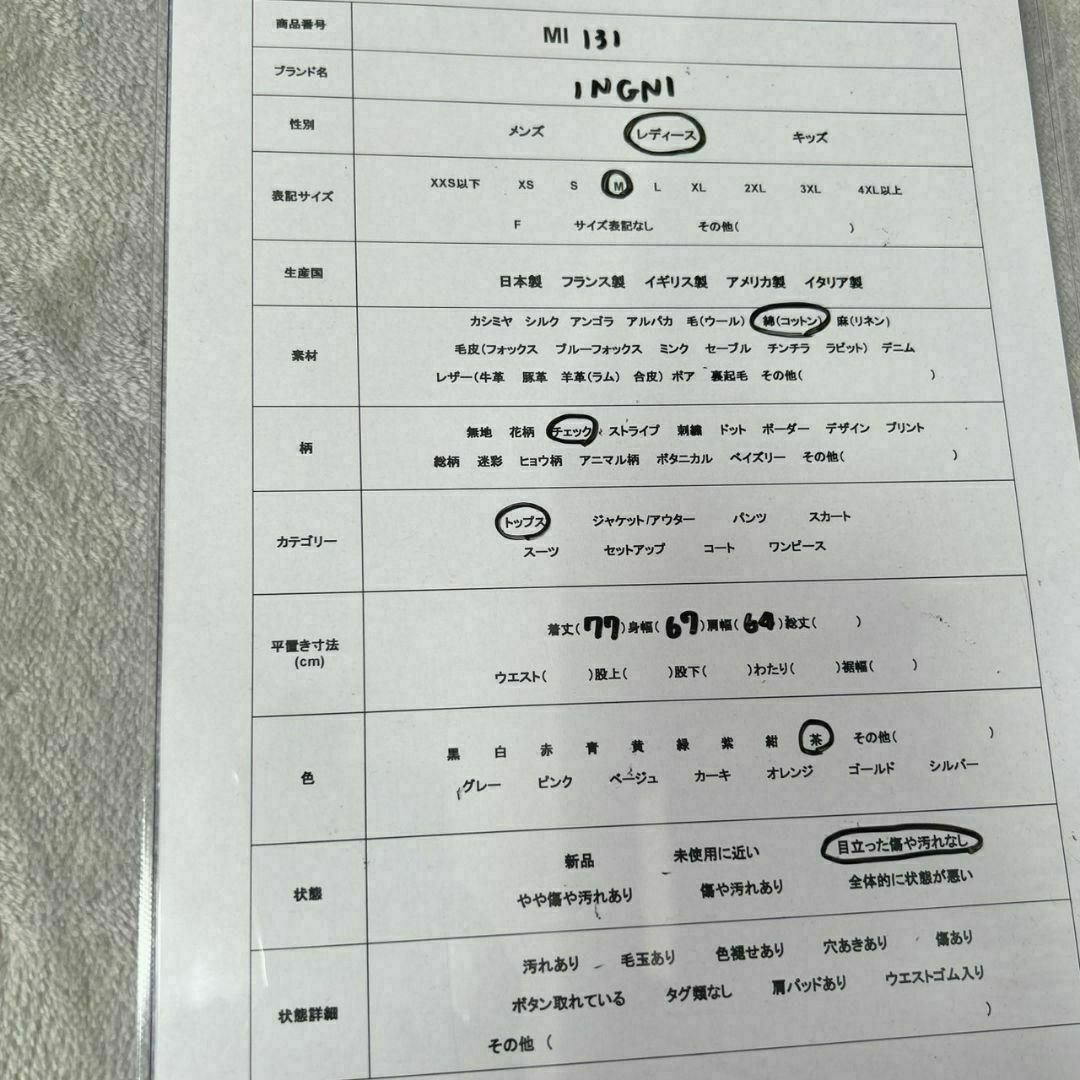 商品番号 MI 131
ブランド名 INGNI
性別 メンズ レディース キッズ
表記サイズ XXS以下 XS S M L XL 2XL 3XL 4XL以上
F サイズ表記なし その他( )
生産国 日本製 フランス製 イギリス製 アメリカ製 イタリア製
素材 カシミヤ シルク アンゴラ アルパカ 毛(ウール) 綿(コットン) 麻(リネン)
毛皮(フォックス ブルーフォックス ミンク セーブル チンチラ ラビット) デニム
レザー(牛革 豚革 羊革(ラム) 合皮) ボア 裏起毛 その他( )
柄 無地 花柄 チェック ストライプ 刺繍 ドット ボーダー デザイン プリント
総柄 迷彩 ヒョウ柄 アニマル柄 ボタニカル ペイズリー その他( )
カテゴリー トップス ジャケット/アウター パンツ スカート
スーツ セットアップ コート ワンピース
平置き寸法 (cm) 着丈(77)身幅(67)肩幅(64)総丈( )
ウエスト( )股上( )股下( )わたり( )裾幅( )
色 黒 白 赤 青 黄 緑 紫 紺 茶 その他( )
グレー ピンク ベージュ カーキ オレンジ ゴールド シルバー
状態 新品 未使用に近い 目立った傷や汚れなし
やや傷や汚れあり 傷や汚れあり 全体的に状態が悪い
状態詳細 汚れあり 毛玉あり 色褪せあり 穴あきあり 傷あり
ボタン取れている タグ類なし 肩パッドあり ウエストゴム入り
その他 ( )